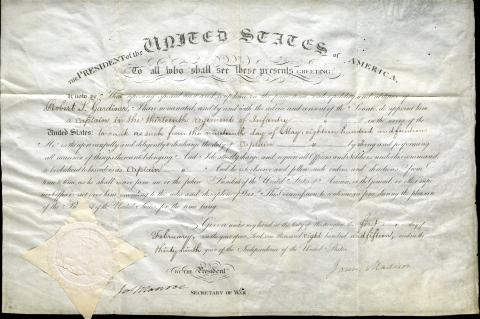 THE PRESIDENT of the UNITED STATES of AMERICA,
To all who shall see these presents GREETING:
Know ye That reposing special trust and confidence in the patriotism, valor, fidelity and abilities of
Robert S. Gardiner, I have nominated, and by and with the advice and consent of the Senate do appoint him
a captain in the thirteenth regiment of Infantry in the service of the
United States: to rank as such from the day of May, eighteen hundred and
He is therefore carefully and diligently to discharge the duty of captain by doing and performing
all manner of things thereunto belonging. And I do strictly charge, and require all Officers and Soldiers under his command
to be obedient to his orders as captain And he is to observe and follow such orders and directions, from
time to time, as he shall receive from me, or the future President of the United States of America, or the General or other
superior Officers set over him, according to the rules and discipline of War. This Commission to continue in force during the pleasure
of the President of the United States, for the time being.
Given under my hand, at the City of Washington, this first day of
February, in the year of our Lord one thousand eight hundred and fifteen, and in the
thirty ninth year of the Independence of the United States.
By the President
James Madison
Jas Monroe
SECRETARY OF WAR.